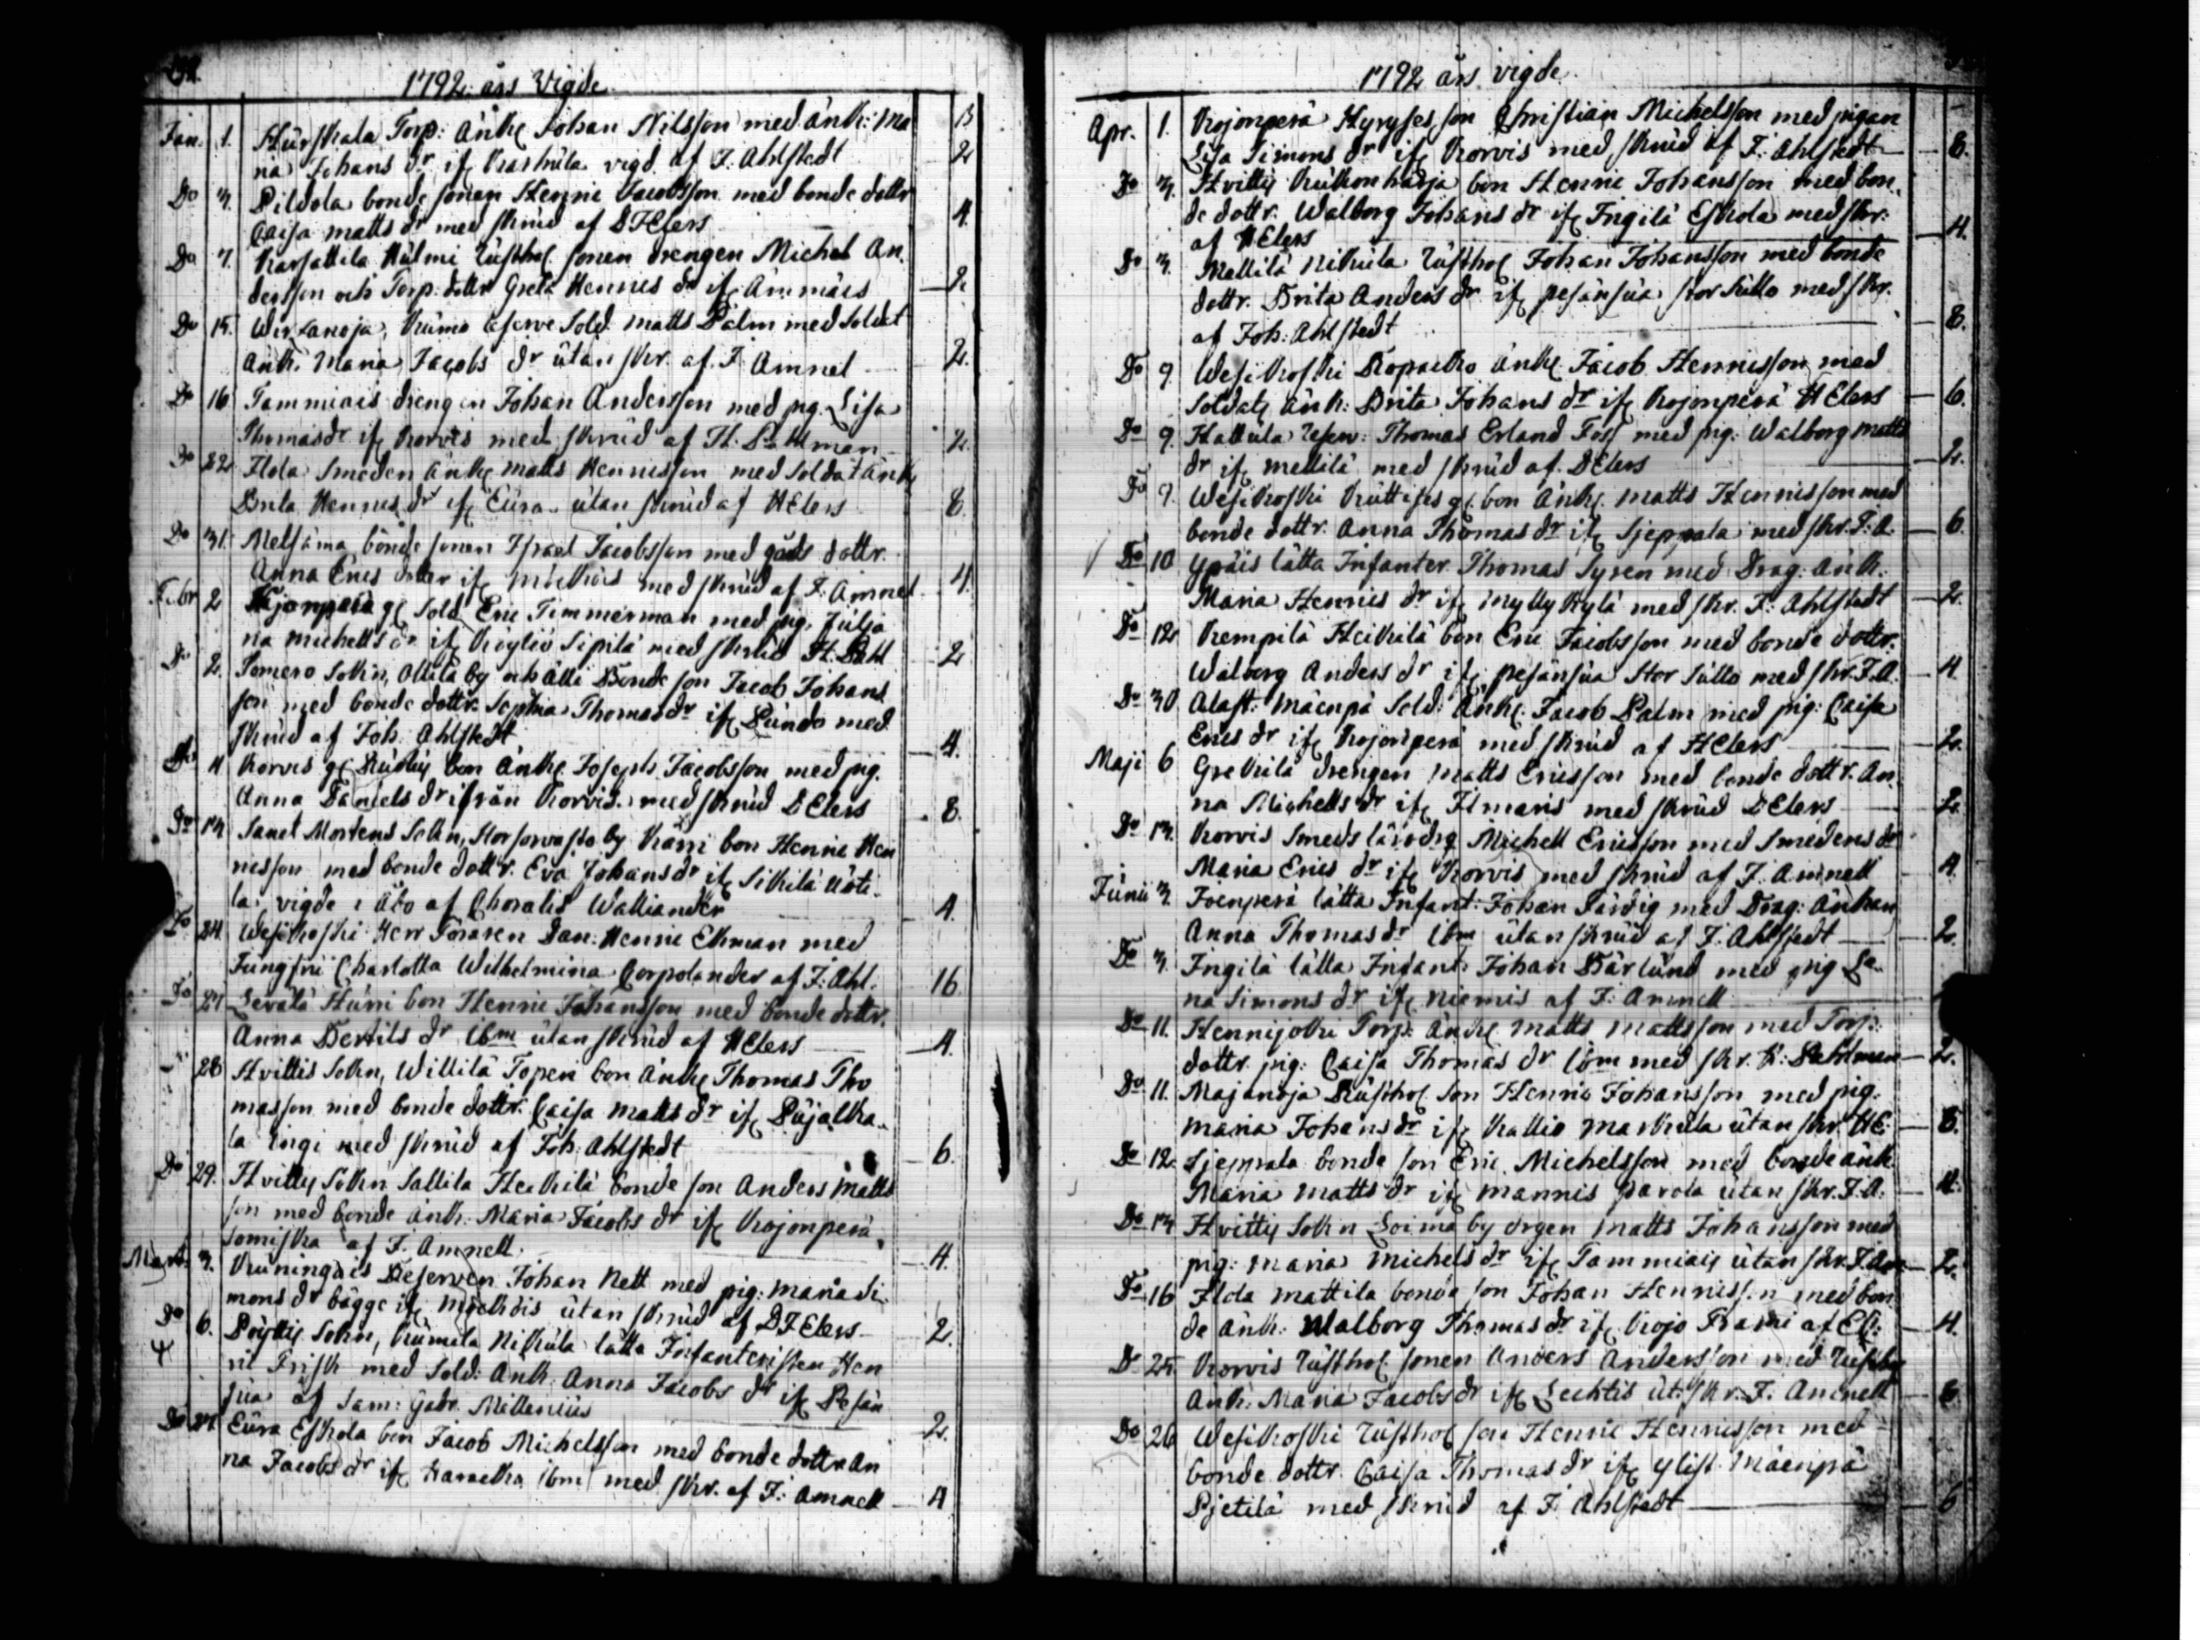 1792 års Vigde
Jan. 1. Hurskala Torp: Änkl Johan Nilsson med änk: Ma
ria Johans dr if vigd af J. Ahlstedt 2
Do 3. Pildola bonde sonen Henric Jacobsson med bonde dottr
Caisa Matts dr med skrud af D F Elers 4.
Do 7. Karsattila Külmi Rusthol sonen drengen Michel An
dersson och Torp: dottr Greta Hennies dr if Ämmäis 2
Do 15. Wirzanoja, Sold Matts Palm med Soldat
Änk: Maria Jacobs dr utan skr. af. J. Amnel 2.
Do 16 Tammiais drengen Johan Andersson med pig. Lisa
Thomasdr if Korvis med skrud af H. Pahlman 2.
Do 22 Ilola Smeden änkl Matts Hennisson med Soldat änk
Brita Hennis dr if Eura utan skrud af H Elers 8
Do 31. Metsäma bonde sonen Israel Jacobsson med gåds dottr.
Anna Erics dotter if med skrud af J. Amnel 4.
Febr 2 Sold Eric Timmerman med pig. Julja
na Michells dr if Köyliö Sipilä med skrud H. Pahl 2
Do 2. Somero Sokn, Ollila by och Alli Bonde son Jacob Johans
son med bonde dottr Sophia Thomas dr if Punda med
skrud af Joh. Ahlstedt 4.
Do 11 Korvis bon änkl Josephs Jacobsson med pig.
Anna Daniels dr ifrån Korvis med skrud D Elers 8.
Do 13 Sanct Mortens Sokn, by bon Henric Hen
nesson med bonde dottr. Eva Johans dr if Sikilä
la. vigde i Åbo af Choralis Walliander 4.
Do 24 Wesikoski Herr Föraren Dan: Henric Ekman med
Jungfru Charlotta Wilhelmina Carpolander af J. Ahl. 16
Do 27 Levälä Hurri bon Henric Johansson med bonde dottr.
Anna Bertils dr ibm utan skrud af H Elers 4.
28 Hvittis Sokn, Willilä Topen bon änkl Thomas Tho
masson med bonde dottr. Caisa Matts dr if Pujalka
la ingi med skrud af Joh. Ahlstedt 6.
Do 29. Hvittis Sokn Sallila Heikilä bonde son Anders Matts
son med bonde änk. Maria Jacobs dr if Kojonperä
Somiska af J. Amnell. 4.
Mart. 3. Kuningais Reserven Johan Nett med pig. Maria Si
mons dr bägge if utan skrud af D F Elers 2.
Do 6. Pöyttis Sokn, Nikula lätta Infanteristen Hen
ric Frisk med Sold: Änk. Anna Jacobs dr if Pesän
sua af Sam: Gabr. Mellenius 2.
Do Eura Eskola bon Jacob Michelsson med bonde dottr An
na Jacobs dr if ibm med skr. af J. Amnell 4
1792 års vigde
Apr. 1. Kojonperä Hyryses son Christian Michelsson med pigan
Lisa Simons dr if Korvis med skrud af J. Ahlstedt 8.
Do 3. Hvittis bon Henric Johansson med bon
de dottr. Walborg Johans dr if Ingilä Eskola med skr.
af H Elers 4.
Do 3. Mellilä Nikula Rusthol Johan Johansson med bonde
dottr. Brita Anders dr if pesänsua med skr.
af Joh: Ahlstedt 8.
Do 9. Wesikoski änkl Jacob Hennisson med
Soldats änk: Brita Johans dr if Kojonperä H Elers 6.
Do 9. Hallula reserv: Thomas Erland Foss med pig: Walborg Matts
dr if Mellilä med skrud af. D Elers 2.
Do 9. Wesikoski bon änkl. Matts Hennisson med
bonde dottr. Anna Thomas dr if Sjeppala med skr. J. A. 6.
Do 10 Ypäis lätta Infanter. Thomas Syren med Drag: Änk.
Maria Hennis dr if Myllykylä med skr. J. Ahlstedt 2.
Do 12 Kempilä Heikilä bon Eric Jacobsson med bonde dottr.
Walborg Anders dr if pesänsua med skr. J. A. 4.
Do 30 Alast: Mäenpä Sold: Änkl. Jacob Palm med pig: Caisa
Erics dr if Kojonperä med skrud af H Elers 2.
Maji 6 Grekilä drengen Matts Ericsson med bonde dottr. An
na Michells dr if Ilmaris med skrud D Elers 2.
Do 13. Korvis Smeds Michell Ericsson med Smedens dr
Maria Erics dr if Korvis med skrud af J. Amnell 4.
Junii 3. Joenperä lätta Infant: Johan Färdig med Drag: Änkan
Anna Thomas dr ibm utan skrud af J. Ahlstedt 2.
Do 3. Ingilä lätta Infant: Johan Bärlund med pig Le
na Simons dr if Niemis af J. Amnell
Do 11. Hennijoki Torp: änkl Matts Mattsson med Torp:
dottr. pig: Caisa Thomas dr ibm med skr. H: Pahlman 2.
Do 11. Majanoja Rusthol son Henric Johansson med pig.
Maria Johans dr if Kallio Markula utan skr. H E 8.
Do 12 Sjeppala bonde son Eric Michelsson med bonde änk.
Maria Matts dr if Mannis Pavola utan skr. J. A. 4.
Do 13 Hvittis Sokn Loima by drgen Matts Johansson med
pig: Maria Michels dr if Tammiais utan skr. J. Am 2.
Do 16 Ilola Mattila bonde son Johan Hennisson med bon
de änk: Walborg Thomas dr if Kojo 4.
Do 25 Korvis rusthol sonen Anders Andersson med rusthol
Änk: Maria Jacobs dr if Lechtis ut. skr. J. Amnell 6
Do 26 Wesikoski rusthol son Henric Hennisson med
bonde dottr. Caisa Thomas dr if ylist. Mäenpä
Pjetilä med skrud af J. Ahlstedt 6